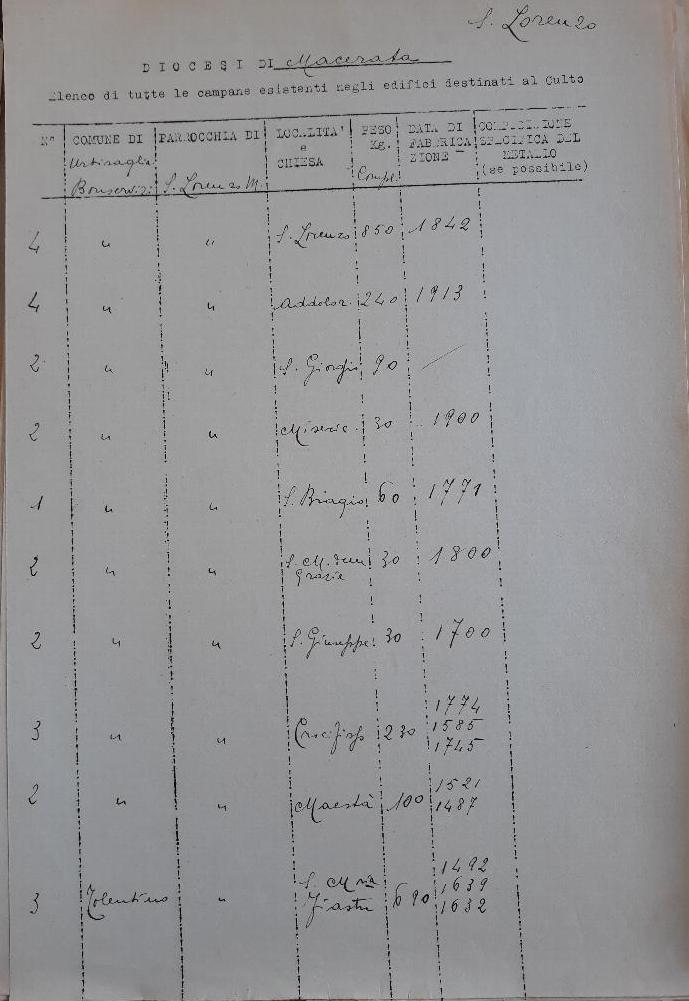 S. Lorenzo
DIOCESI DI Macerata
Elenco di tutte le campane esistenti negli edifici destinati al Culto
N° COMUNE DI PARROCCHIA DI LOCALITA' e CHIESA PESO Kg. DATA DI FABBRICA ZIONE COMPOSIZIONE SPECIFICA DEL METALLO (se possibile)
Urbisaglia Bonservizi S. Lorenzo M. Comple.
4 " " S. Lorenzo 850 1842
4 " " Addolor. 240 1913
2 " " S. Giorgio 90 —
2 " " Miseric. 30 1900
1 " " S. Biagio 60 1771
2 " " S. M. Grazie 30 1800
2 " " S. Giuseppe 30 1700
3 " " Crocifisso 230 1774
1585
1745
2 " " Maestà 100 1521
1487
3 Tolentino " S. M Fiastra 690 1492
1639
1632